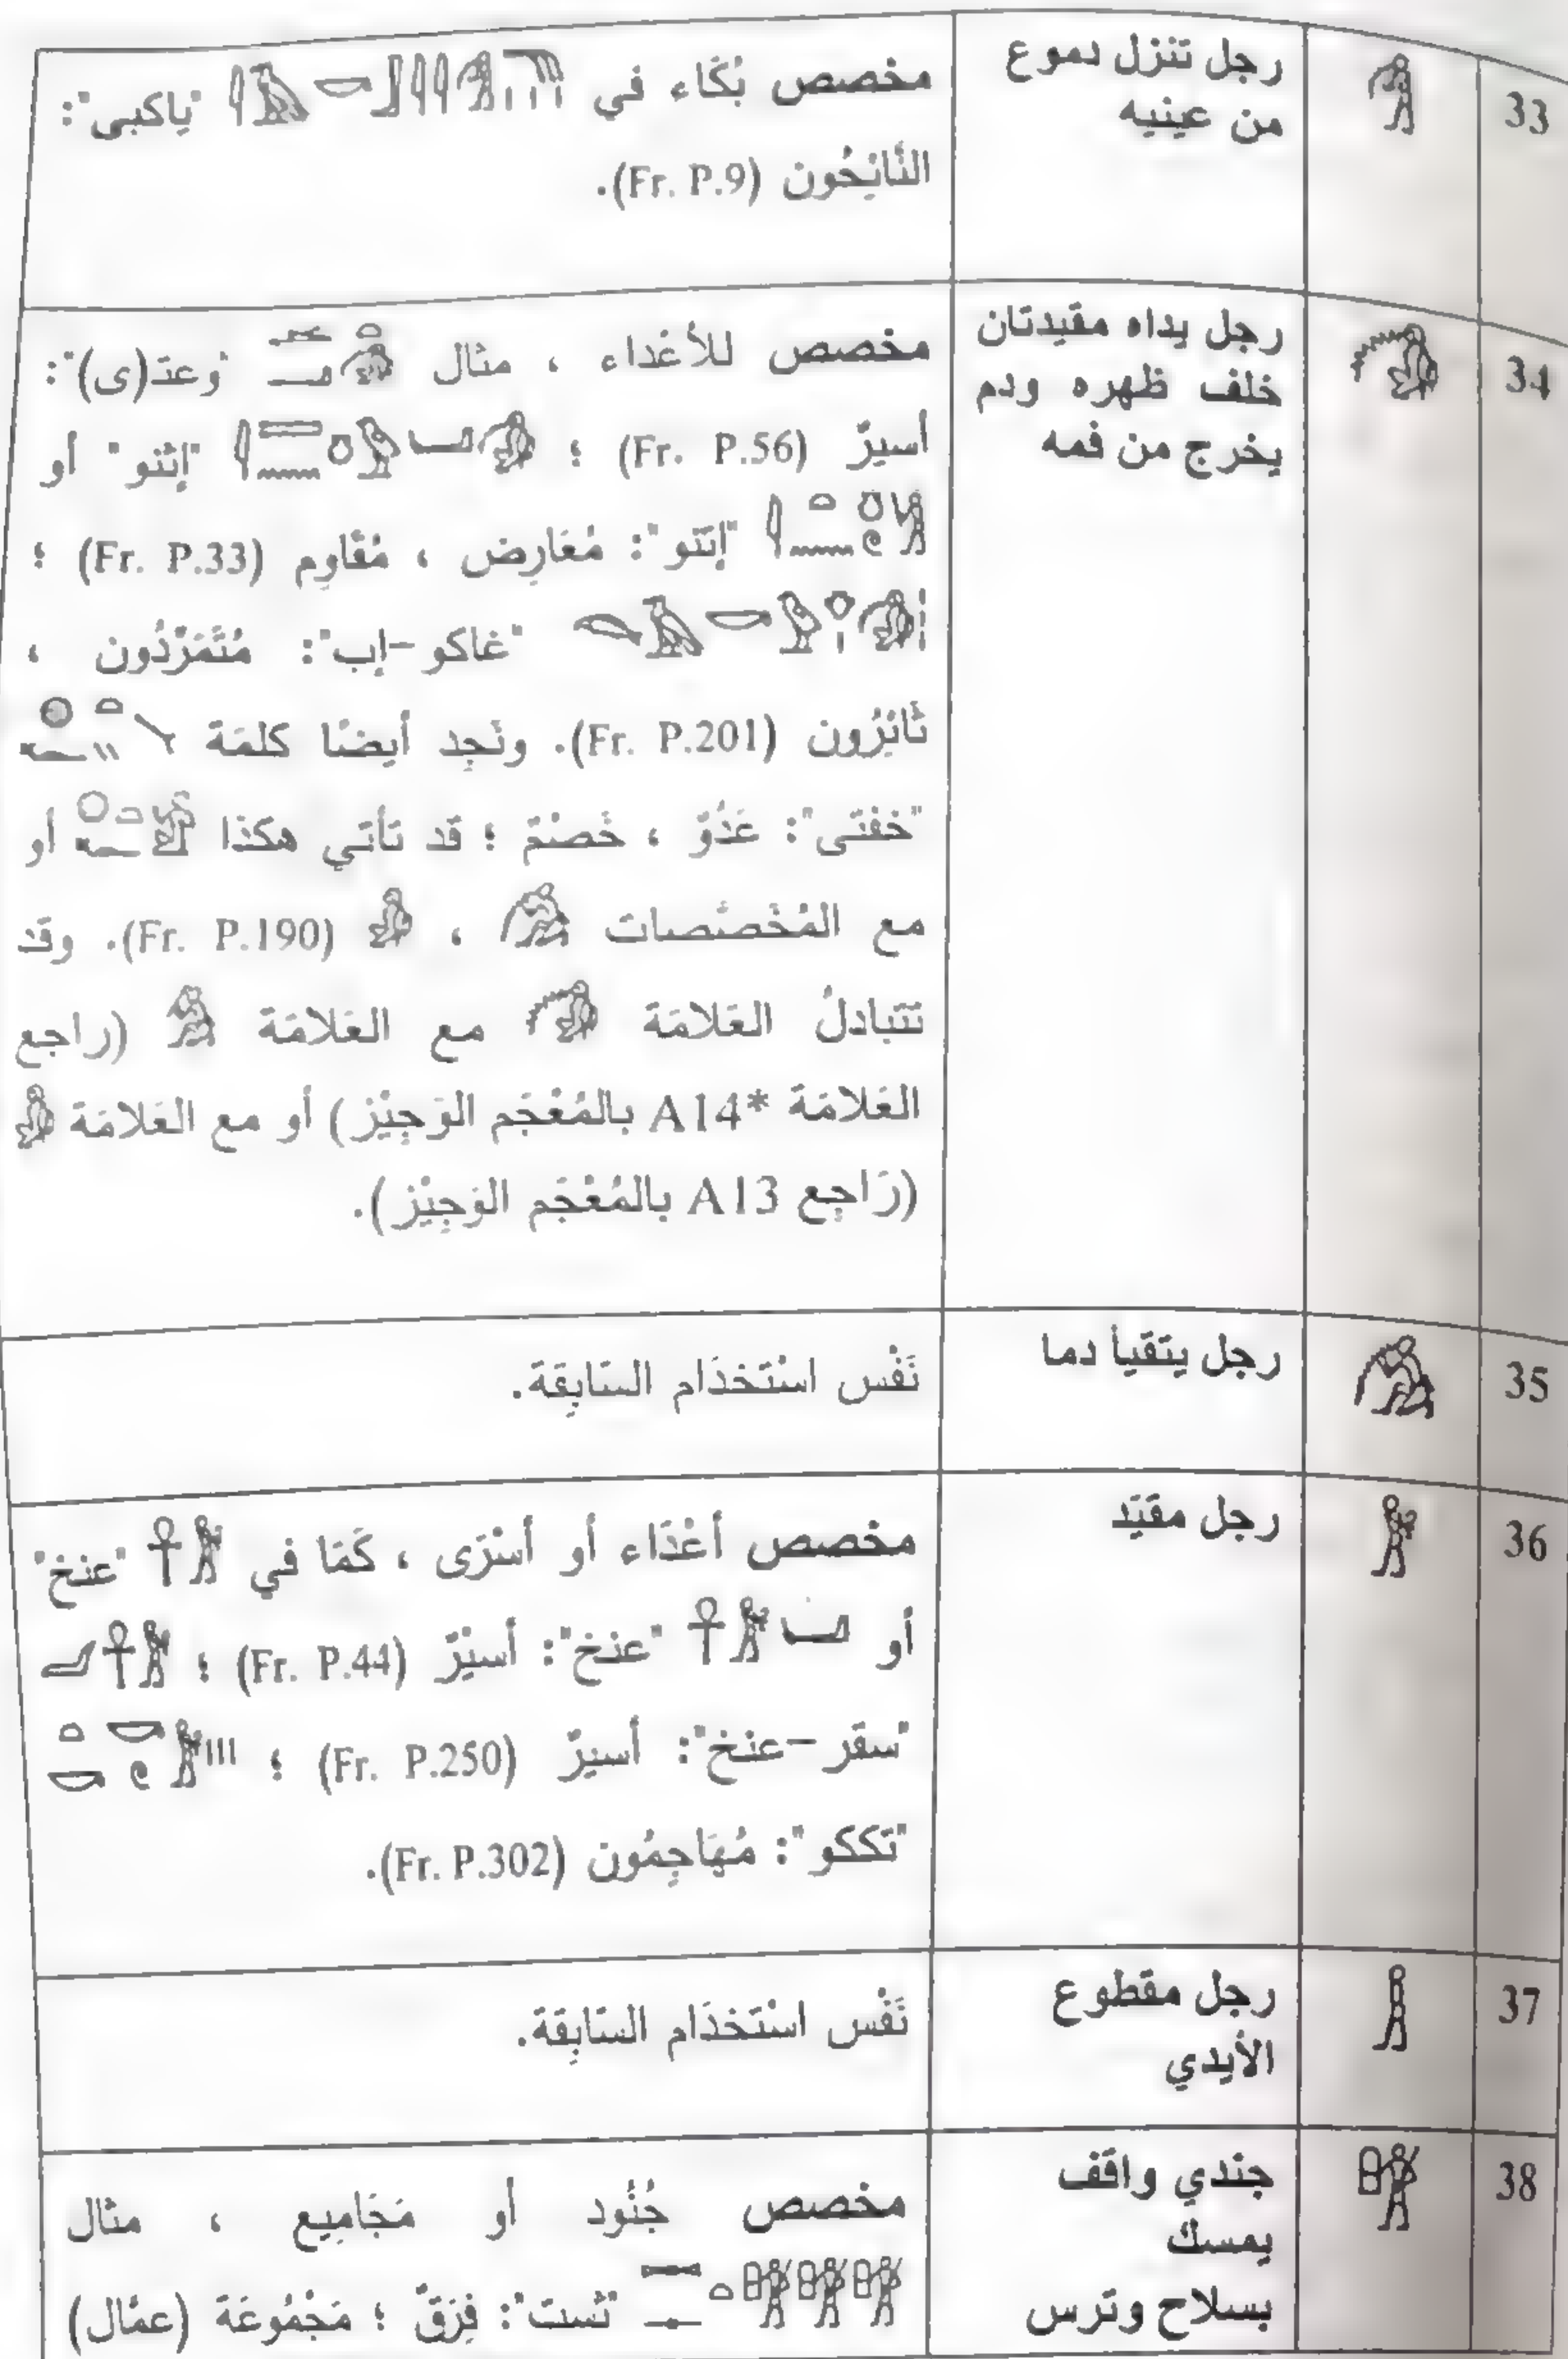 33
رجل تنزل دموع
من عينيه
مخصص بُكَاء في "ياكبى":
النَّائِحُون (Fr. P.9).
34
رجل يداه مقيدتان
خلف ظهره ودم
يخرج من فمه
مخصص للأعْداء ، مثال "وعتـ(ى)":
أسيرٌ (Fr. P.56) ؛ "إثنو" أو
"إتنو": مُعَارِض ، مُقَاوِم (Fr. P.33) ؛
"غاكو-إب": مُتَمَرِّدُون ،
ثَائِرُون (Fr. P.201). ونَجِد أيضًا كلمَة
"خفتى": عَدُوّ ، خَصْمٌ ؛ قد تأتي هكذا أو
مع المُخَصّصات ، (Fr. P.190). وقد
تتبادلُ العَلامَة مع العَلامَة (راجع
العَلامَة *A14 بالمُعْجَم الوَجِيْز) أو مع العَلامَة
(رَاجِع A13 بالمُعْجَم الوَجِيْز).
35
رجل يتقيأ دما
نَفْس اسْتخدَام السَّابِقَة.
36
رجل مقيّد
مخصص أعْدَاء أو أسْرَى ، كَمَا في "عنخ"
أو "عنخ": أسيْرٌ (Fr. P.44) ؛
"سقر-عنخ": أسيرٌ (Fr. P.250) ؛
"تككو": مُهَاجِمُون (Fr. P.302).
37
رجل مقطوع
الأيدي
نَفْس اسْتخدَام السَّابِقَة.
38
جندي واقف
يمسك
بسلاح وترس
مخصص جُنُود أو مَجَامِيع ، مثال
"ثست": فِرَقٌ ؛ مَجْمُوعَة (عمَّال)